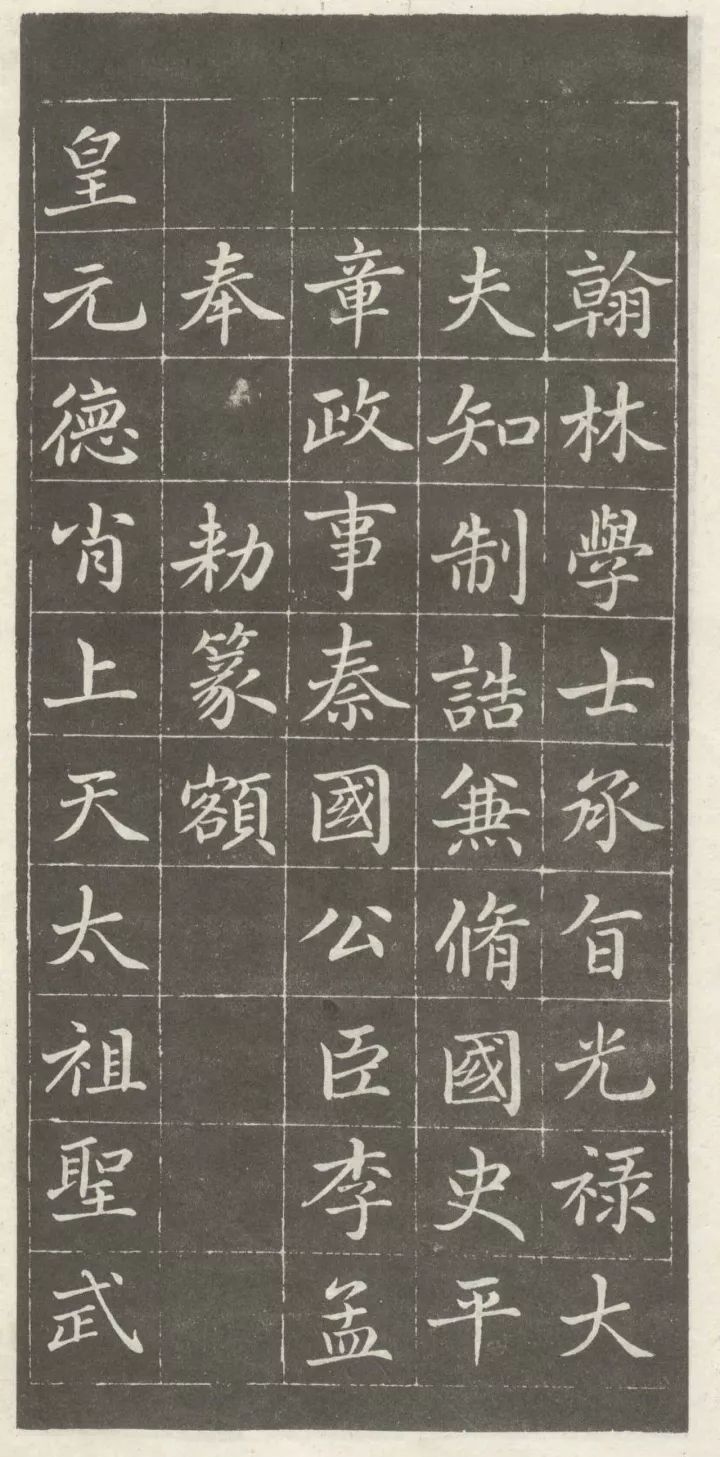 翰林學士承旨光禄大
夫知制誥兼脩國史平
章政事秦國公臣李孟
奉 勑篆額
皇元德肖上天太祖聖武